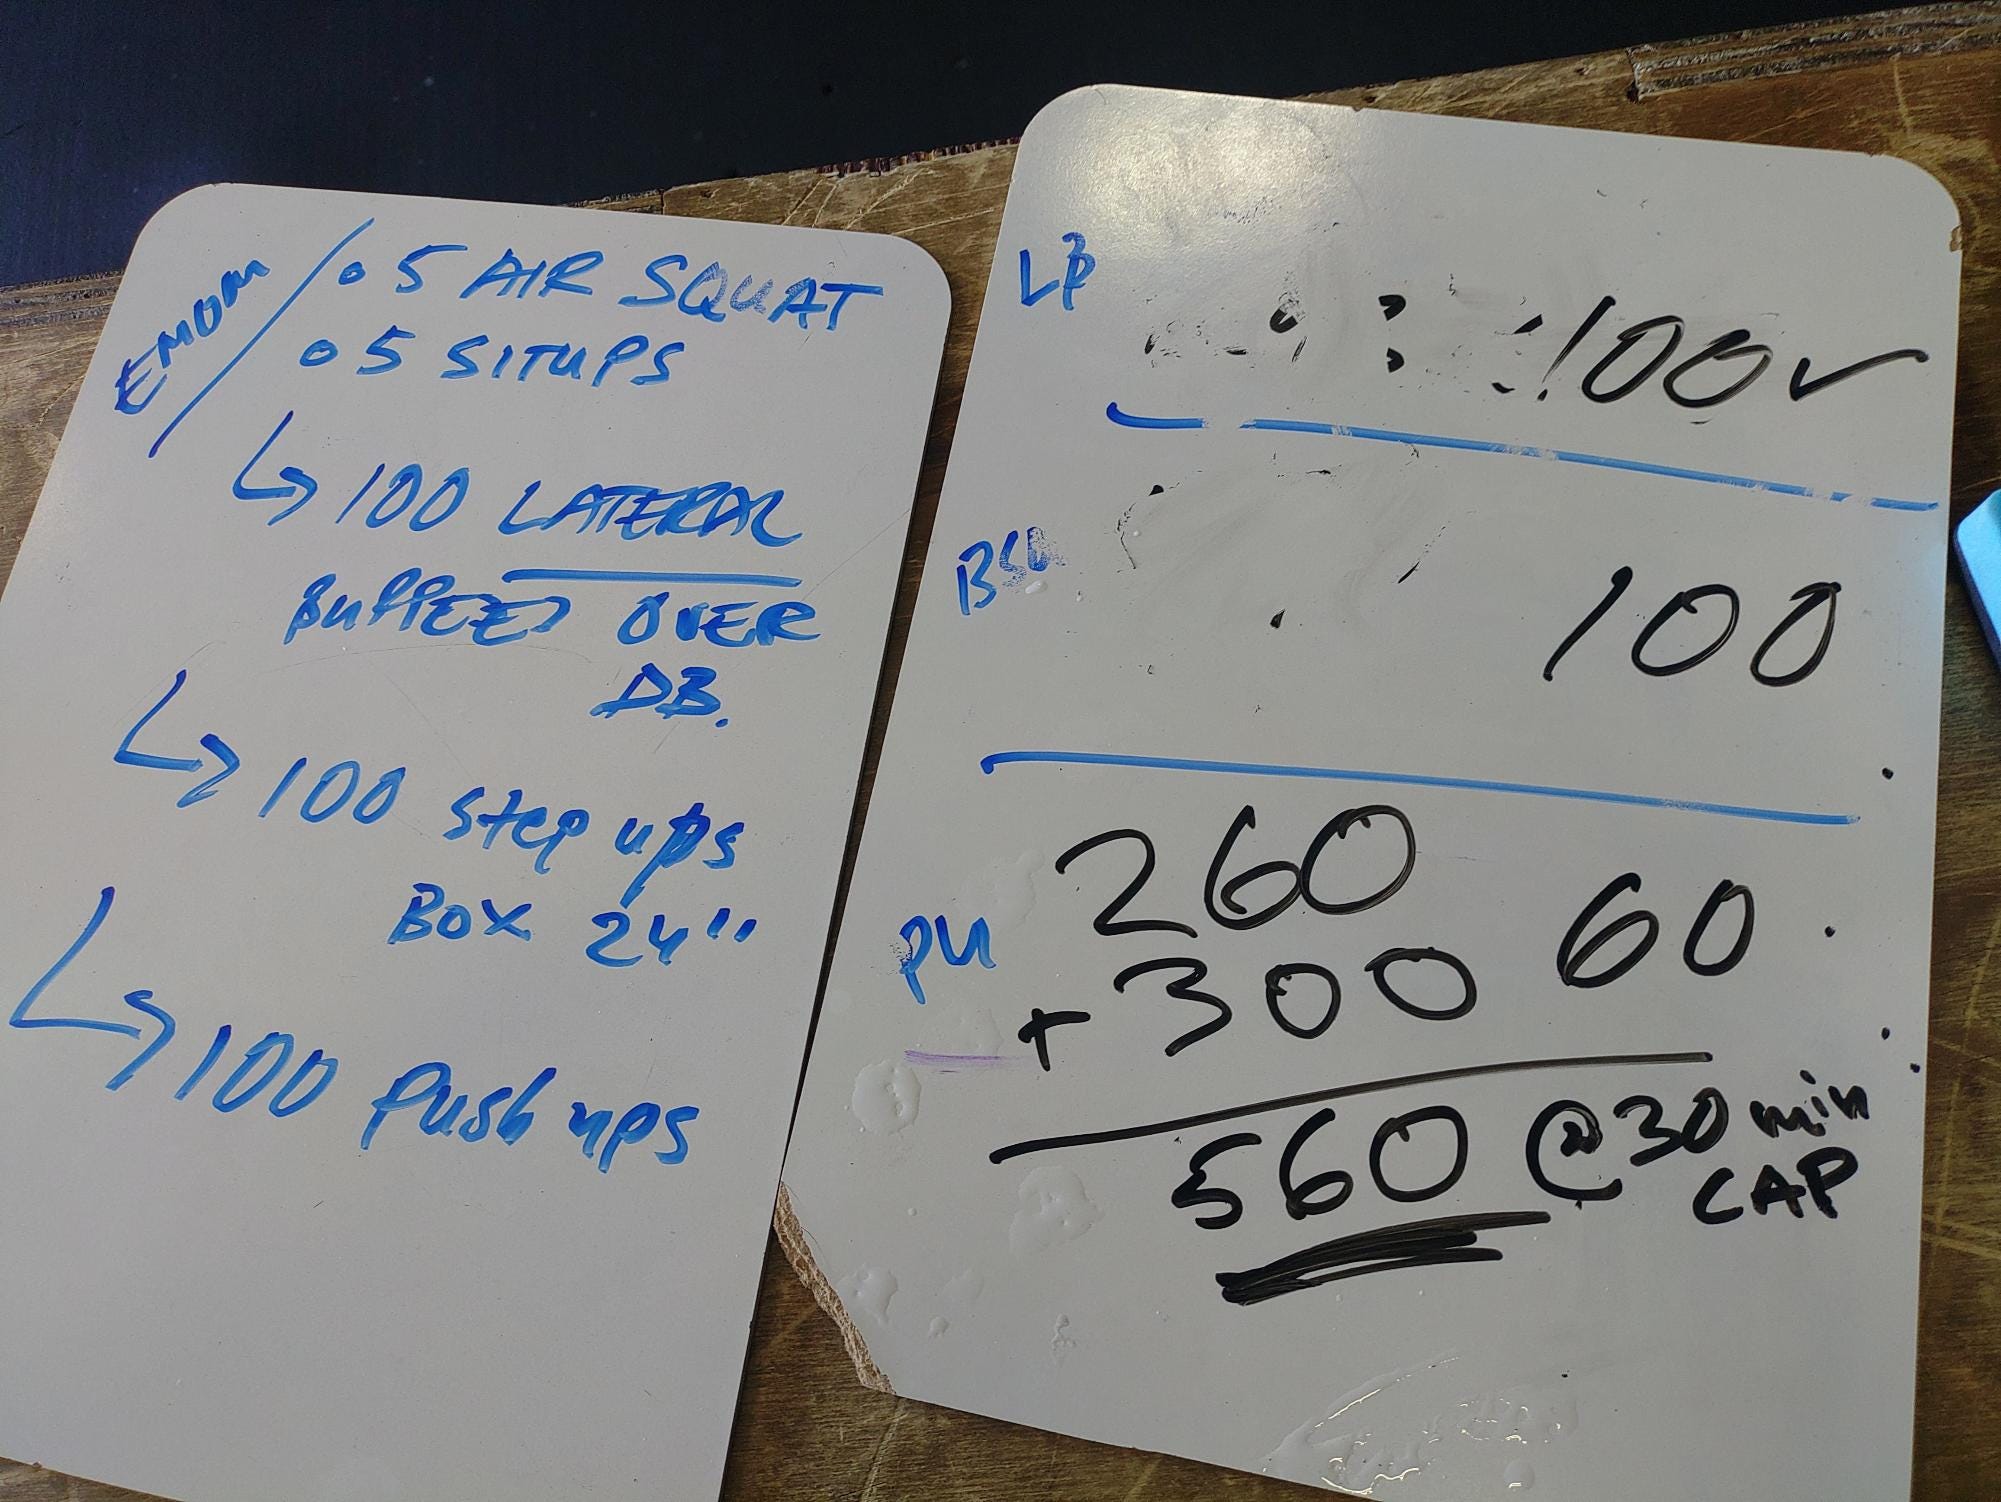 EMOM
• 5 AIR SQUAT
• 5 SITUPS
↳ 100 LATERAL
BURPEES OVER
DB.
↳ 100 step ups
BOX 24"
↳ 100 Push ups
LB
100 ✓
BSU
100
260
60
PU
+ 300
560 @ 30 min
CAP